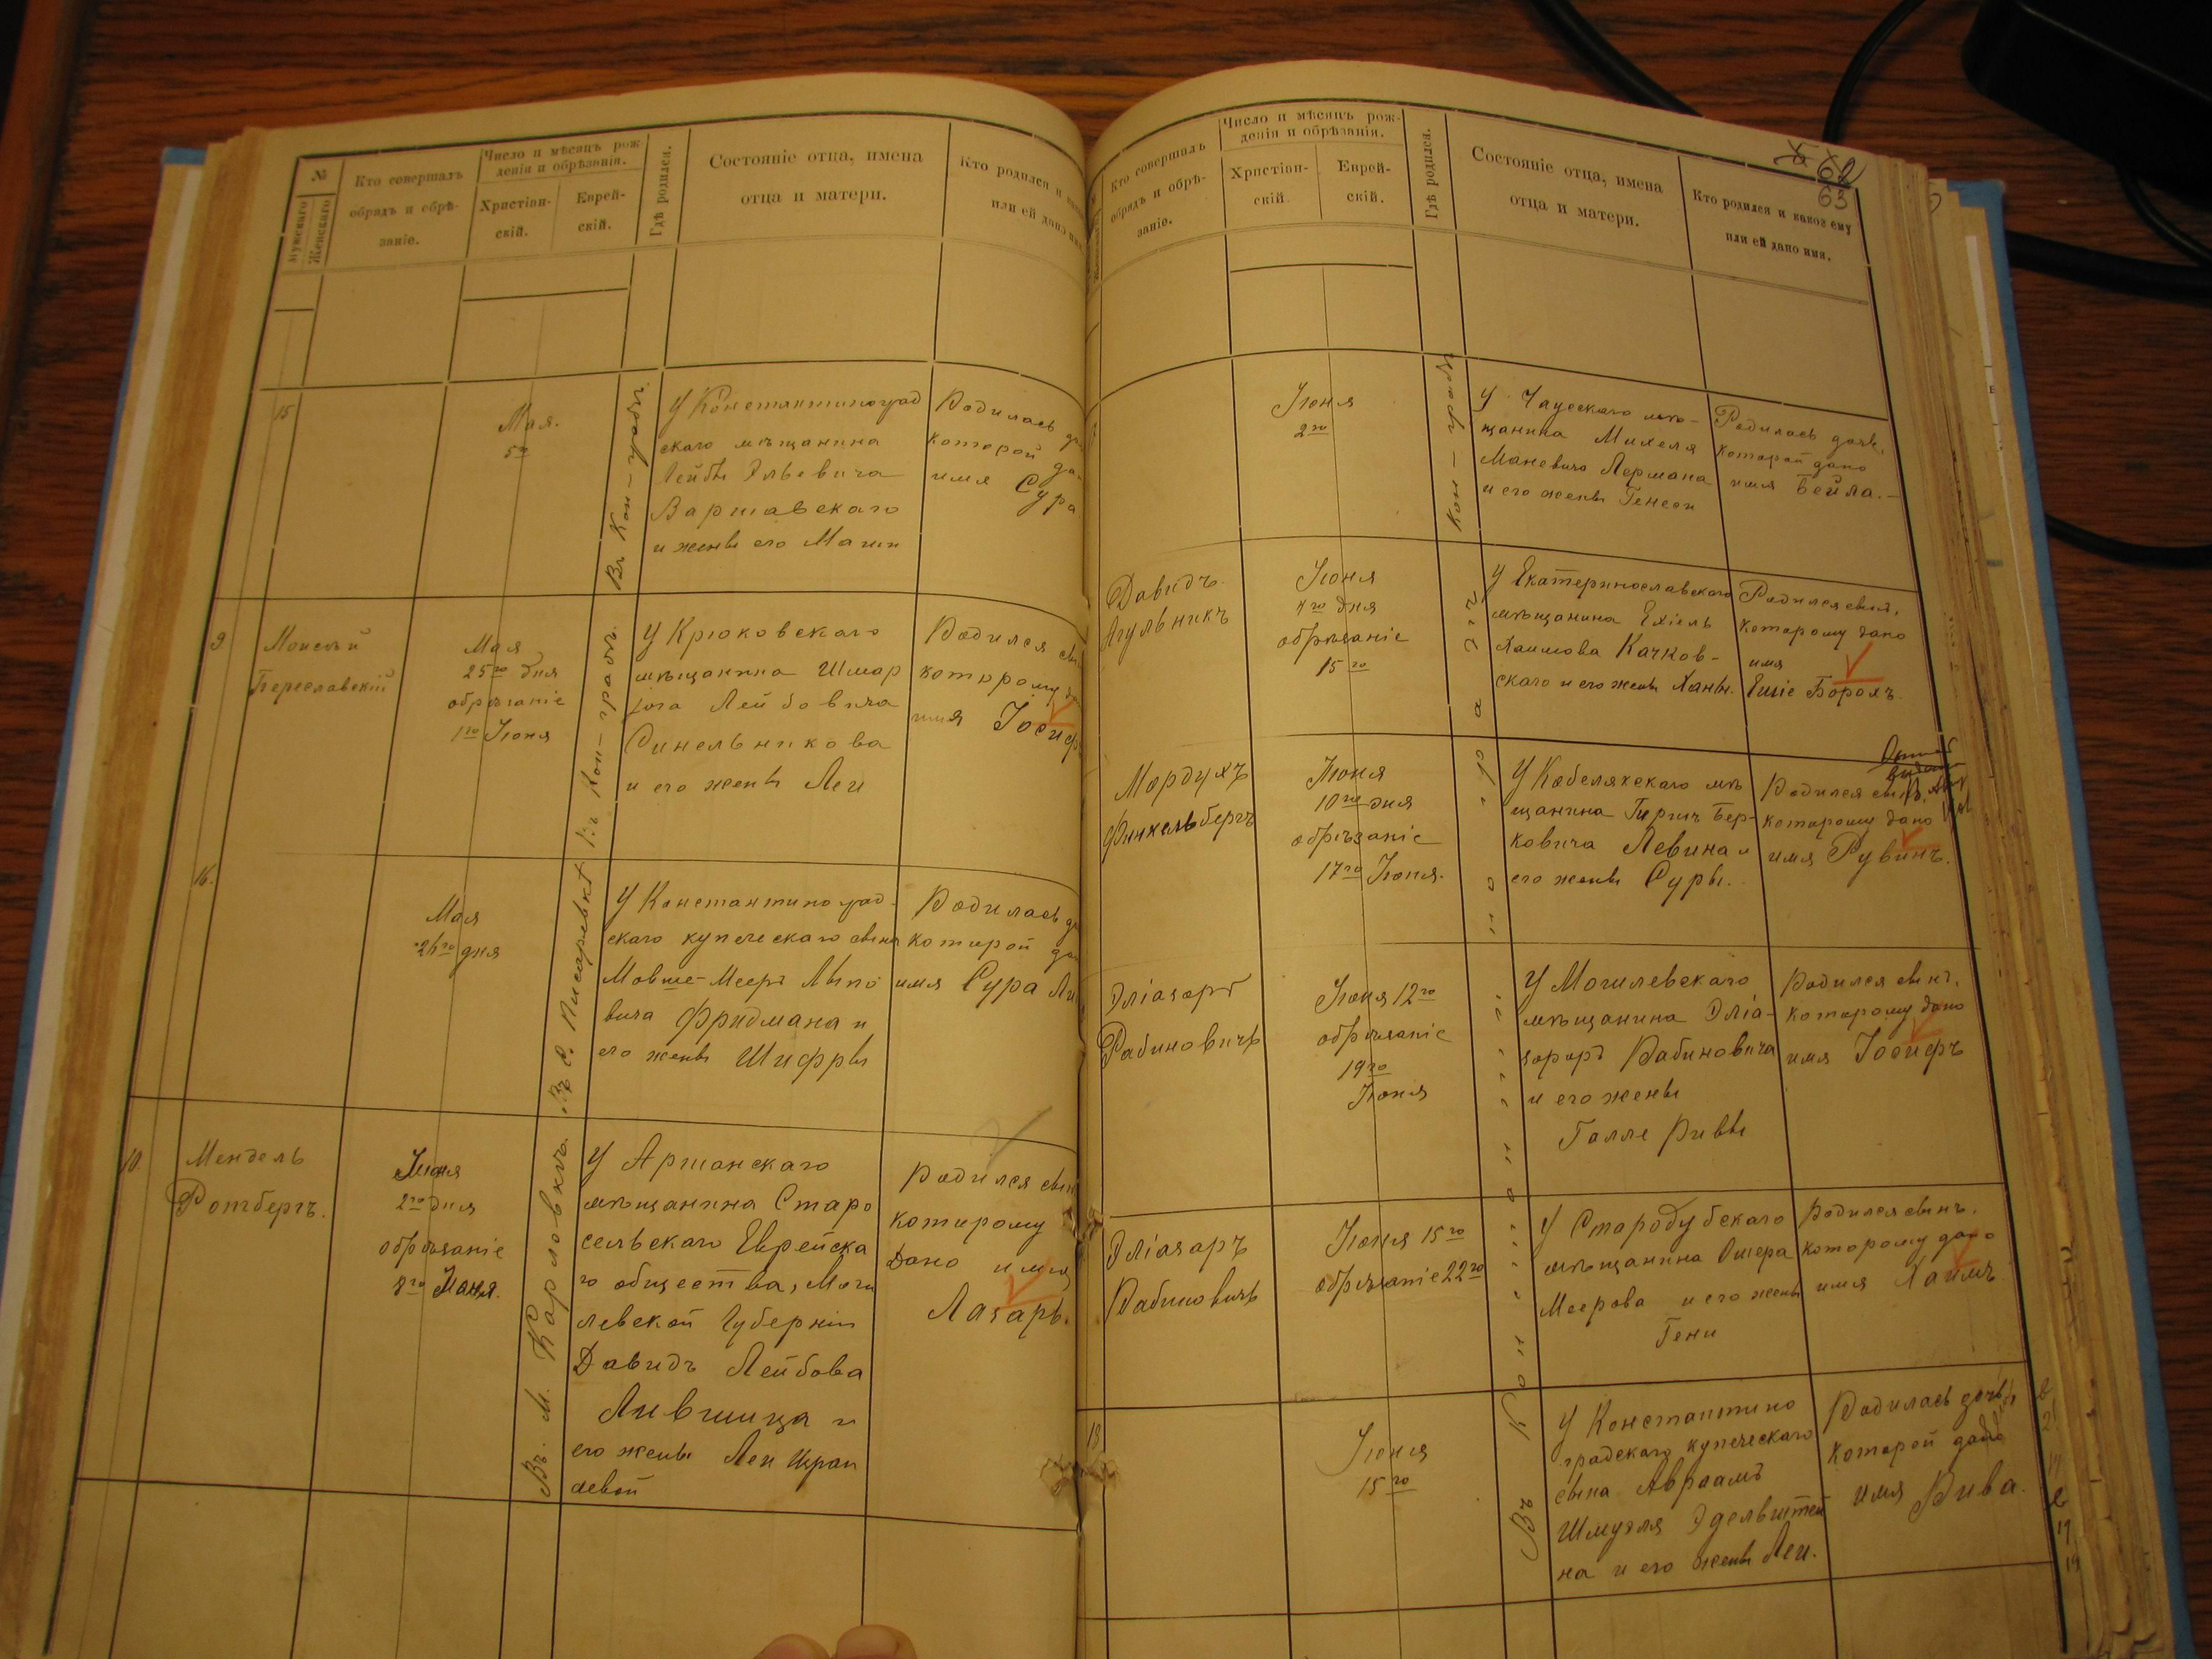 №
Мужескаго
Женскаго
Кто совершалъ
обрядъ и обрѣ-
заніе.
Число и мѣсяцъ рож-
денія и обрѣзанія.
Христіан-
скій.
Еврей-
скій.
Гдѣ родился.
Состояніе отца, имена
отца и матери.
Кто родился и
или ей дано
15
Мая.
5го
Въ Кон-градѣ
У Константиноград
скаго мѣщанина
Лейбы Эльевича
Варшавскаго
и жены его Маши
Родилась
которой
имя Сура
9
Моисей
Береславскій
Мая
25го дня
обрѣзаніе
1го Іюня
Въ Кон-градѣ
У Крюковскаго
мѣщанина Шмар
Лейбовича
Синельникова
и его жены Леи
Родился
которому
имя
16.
Мая
26го дня
Въ с. Писаревкѣ
У Константиноград-
скаго купеческаго сына
Мовше-Мееръ
вича Фридмана и
его жены Шифры
Родилась
которой
имя Сура
10
Мендель
Ротбергъ.
Іюня
2го дня
обрѣзаніе
Іюня.
Въ м. Карловкѣ
У Аршанскаго
мѣщанина Старо
сельскаго Еврейска
го общества, Моги
левской Губерніи
Давидъ Лейбова
Лившица и
его жены Леи
Родился
которому
дано имя
Лазарь.
62
63
Кто совершалъ
обрядъ и обрѣ-
заніе.
Число и мѣсяцъ рож-
денія и обрѣзанія.
Христіан-
скій.
Еврей-
скій.
Гдѣ родился.
Состояніе отца, имена
отца и матери.
Кто родился и какое ему
или ей дано имя.
Іюня
2го
Кон-градѣ
У Чаусскаго мѣ-
щанина Михеля
Маневича Лермана
и его жены Генеси
Родилась дочь,
которой дано
имя Бейла.-
Давидъ
Агульникъ
Іюня
дня
обрѣзаніе
15го
У Екатеринославскаго
мѣщанина Ехіель
Хаимова Качков-
скаго и его жены Ханы.
Родился сынъ,
которому дано
имя
Борохъ.
Мордухъ
Финкельбергъ
Іюня
10го дня
обрѣзаніе
17го Іюня.
У Кобелякскаго мѣ
щанина Гиршъ Бер-
ковича Левина и
его жены Суры.
Родился сынъ,
которому дано
имя Рувинъ.
Эліазаръ
Рабиновичъ
Іюня 12го
обрѣзаніе
19го
Іюня
У Могилевскаго
мѣщанина Эліа-
Рабиновича
и его жены
Галле Ривы
Родился сынъ,
которому дано
имя Іосифъ
Эліазаръ
Рабиновичъ
Іюня 15го
обрѣзаніе 22го
У Стародубскаго
мѣщанина Ошера
Меерова и его жены
Гени
Родился сынъ,
которому дано
имя Хаимъ
18
Іюня
15го
У Константино
градскаго купеческаго
сына Авраамъ
Шмуэля Эдельштей
на и его жены Леи.
Родилась дочь,
которой дано
имя Рива.